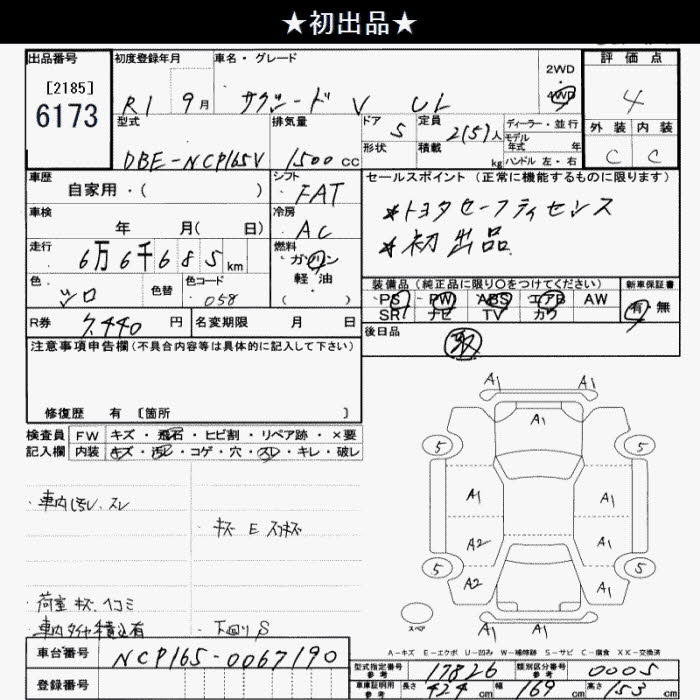 ★初出品★
出品番号 初度登録年月 車名・グレード 2WD 評価点
[2185]
6173 R1 9月 サクシード V UL 4WD 4
型式 排気量 ドア 5 定員 2(5)人 ディーラー・並行 外装 内装
形状 積載 kg モデル年式 年
DBE-NCP165V 1500cc ハンドル 左・右 C C
車歴 シフト セールスポイント (正常に機能するものに限ります)
自家用・( ) FAT
車検 冷房 ★トヨタセーフティセンス
年 月( 日) AC ★初出品
走行 燃料
6万6千685km ガソリン
色 色替 色コード 軽・油 装備品 (純正品に限り○をつけてください) 新車保証書
シロ 058 ( ) PS PW ABS エアB AW 有 無
R券 7,440円 名変期限 月 日 SR ナビ TV カワ
後日品 取
注意事項申告欄(不具合内容等は具体的に記入して下さい)
修復歴 有 [箇所 ]
検査員 FW キズ・飛石・ヒビ割・リペア跡・×要
記入欄 内装 キズ・汚レ・コゲ・穴・スレ・キレ・破レ
・車内汚レ、スレ
・キズ E スリキズ
・荷室 キズ、ヘコミ
・車内タイヤ積込有 ・下回り S
A1 A1
A1
5 5
A1 A1
A2 A1
5 5
A2 A1
A1 A1
スペア
A-キズ E-エクボ U-凹み W-補修跡 S-サビ C-腐食 XX-交換済
車台番号 NCP165-0067190
型式指定番号 参考 17826 類別区分番号 参考 0005
登録番号
車庫証明用 参考 長さ 424cm 幅 169cm 高さ 153cm